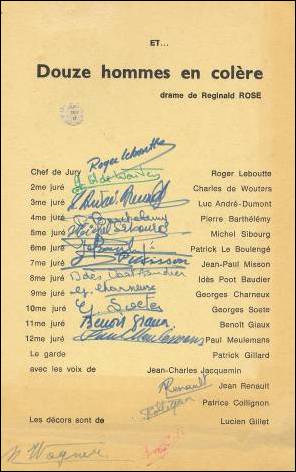 ET...
Douze hommes en colère
drame de Reginald ROSE
Roger Leboutte
Chef de Jury Roger Leboutte
2me juré Charles de Wouters
3me juré Luc André-Dumont
4me juré Pierre Barthélémy
5me juré Michel Sibourg
6me juré Patrick Le Boulengé
7me juré Jean-Paul Misson
8me juré Idès Poot Baudier
9me juré G. Charneux Georges Charneux
10me juré G. Soete Georges Soete
11me juré Benoît Giaux Benoît Giaux
12me juré Paul Meulemans Paul Meulemans
Le garde Patrick Gillard
avec les voix de Jean-Charles Jacquemin
Renault
Jean Renault
Collignon
Patrice Collignon
Les décors sont de Lucien Gillet
Wagner